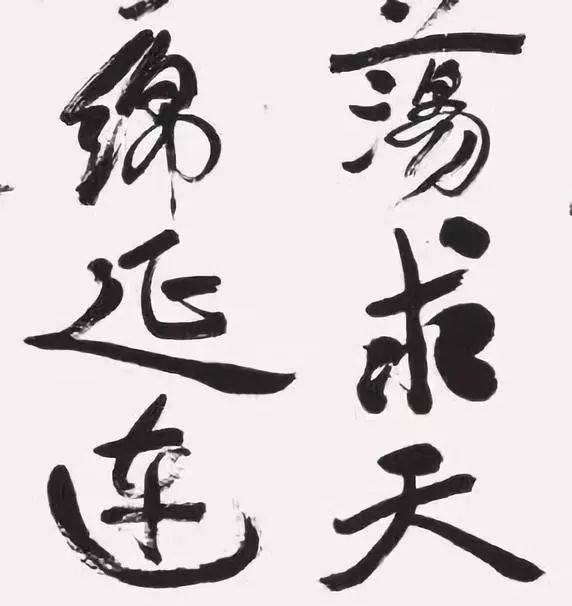 蕩求天
綿延連